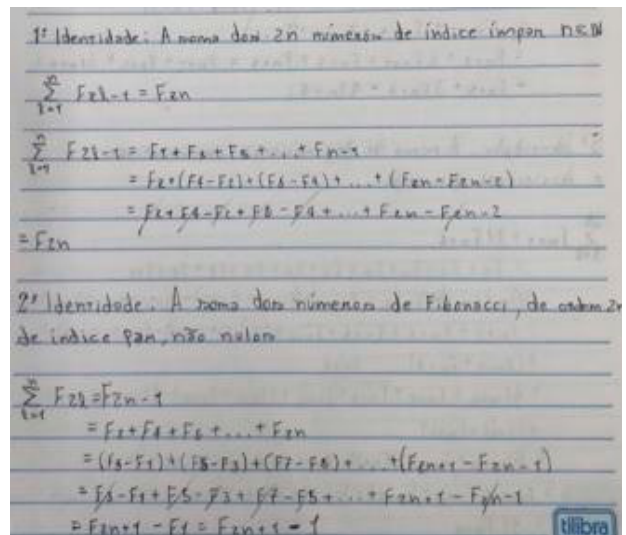 1ª Identidade: A soma dos 2n números de índice ímpar n∈N
n Σ k=1 F2k-1 = F2n
n Σ k=1 F2k-1 = F1+F3+F5+...+Fn-1
= F2+(F4-F2)+(F6-F4)+...+(F2n-F2n-2)
= F2+F4-F2+F6-F4+...+F2n-F2n-2
= F2n
2ª Identidade: A soma dos números de Fibonacci, de ordem 2n
de índice par, não nulos
n Σ k=1 F2k = F2n-1
= F2+F4+F6+...+F2n
= (F3-F1)+(F5-F3)+(F7-F5)+...+(F2n+1-F2n-1)
= F3-F1+F5-F3+F7-F5+...+F2n+1-F2n-1
= F2n+1-F1 = F2n+1-1
tilibra